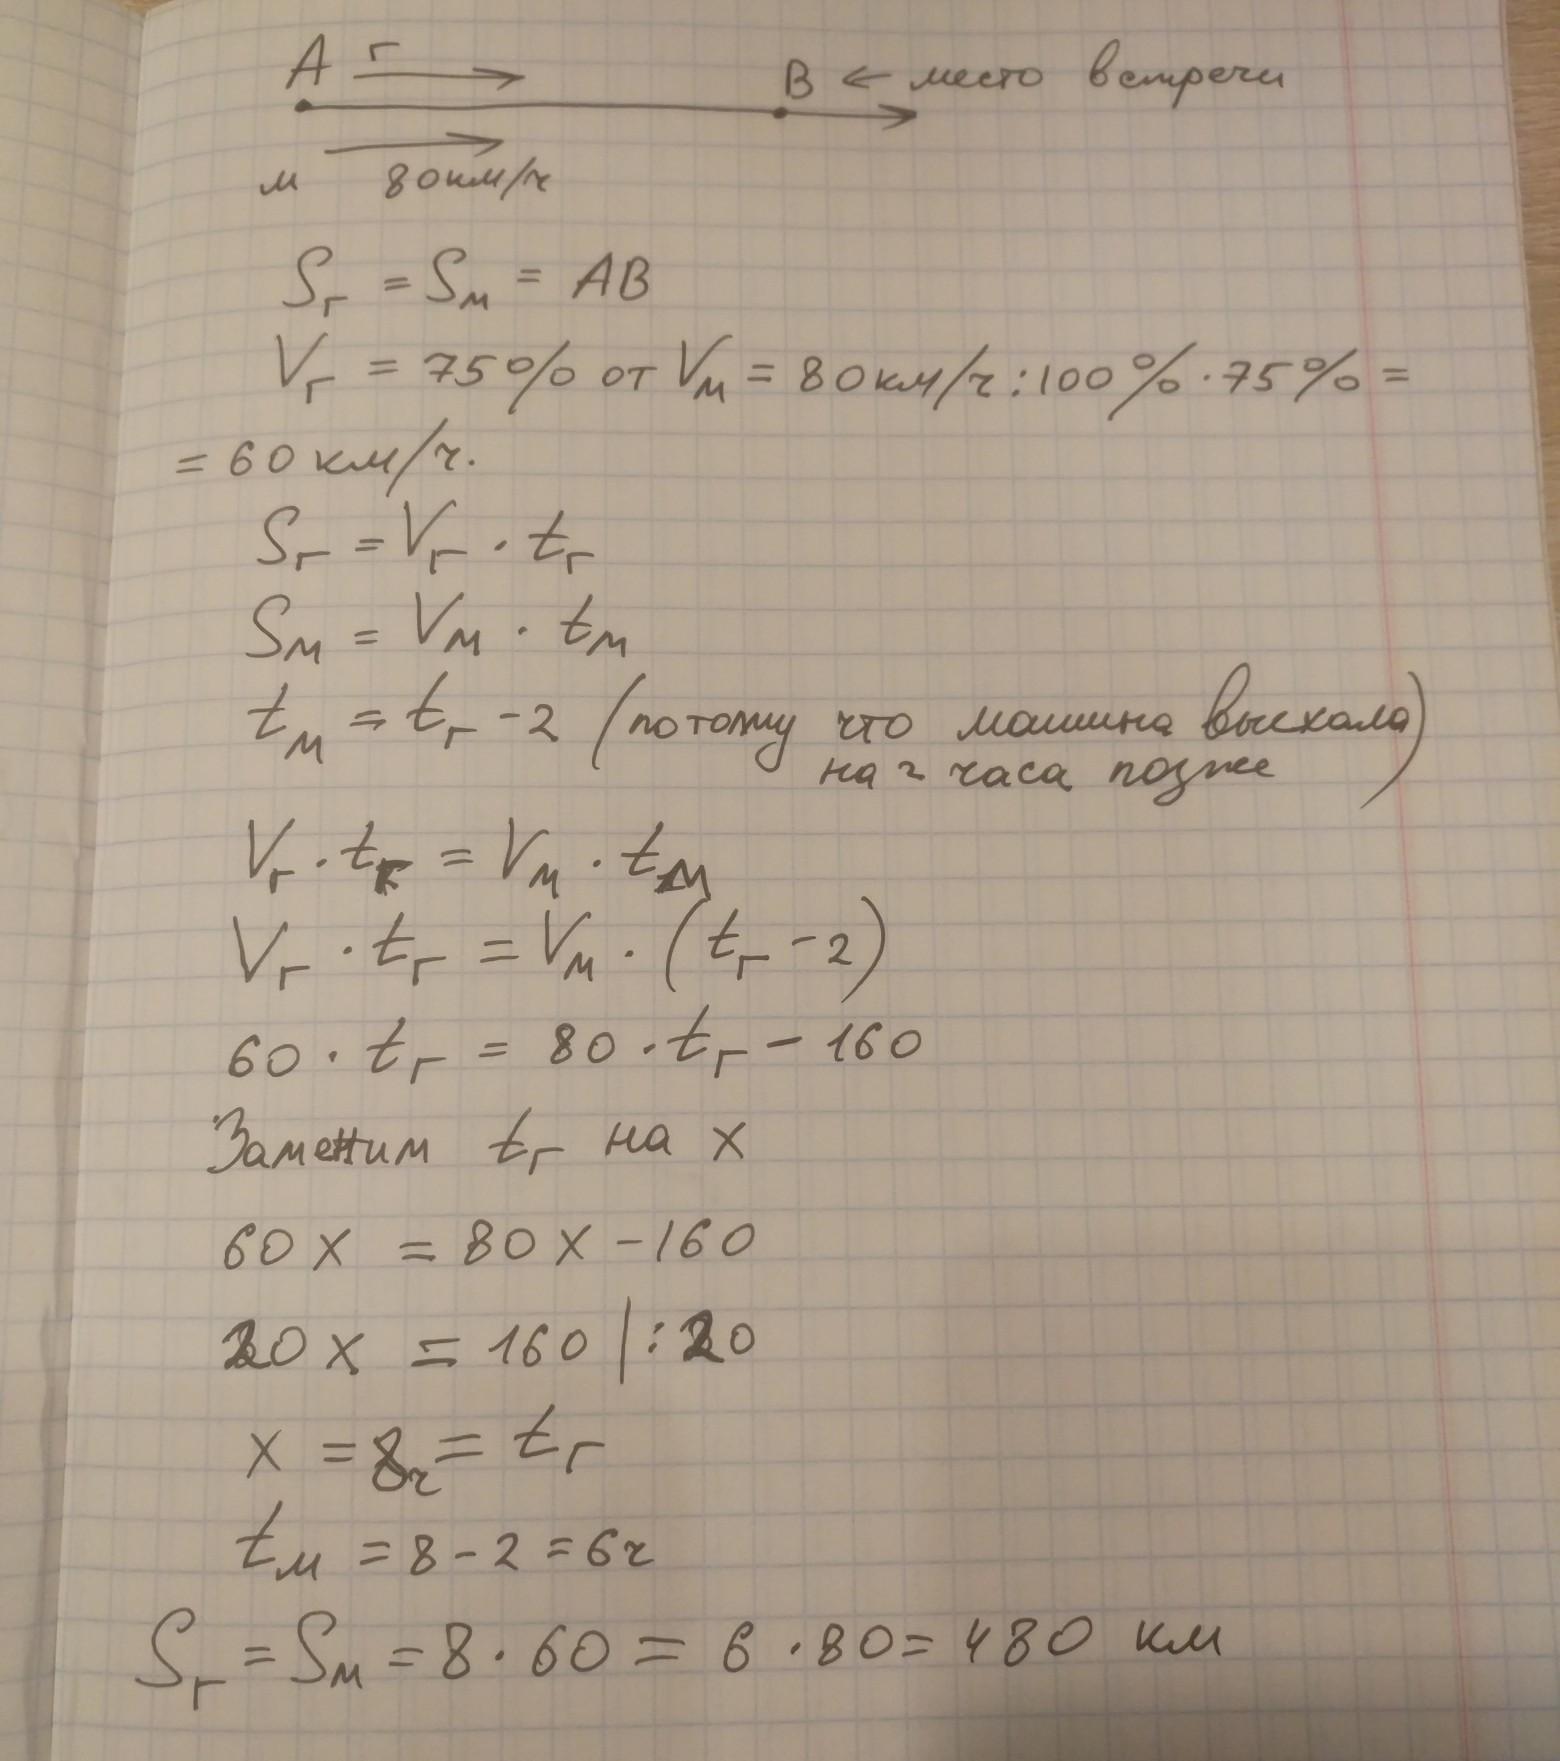 А г В ← место встречи
м 80км/ч
Sг = Sм = AB
Vг = 75% от Vм = 80км/ч:100%·75% =
= 60 км/ч.
Sг = Vг · tг
Sм = Vм · tм
tм = tг - 2 (потому что машина выехала
на 2 часа позже)
Vг · tг = Vм · tм
Vг · tг = Vм · (tг - 2)
60 · tг = 80 · tг - 160
Заменим tг на x
60x = 80x - 160
20x = 160 |:20
x = 8ч = tг
tм = 8 - 2 = 6ч
Sг = Sм = 8 · 60 = 6 · 80 = 480 км